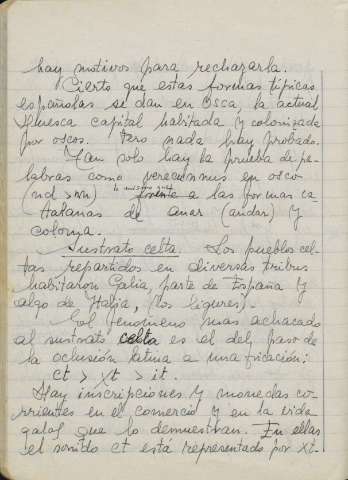 hay motivos para rechazarla.
Cierto que estas formas típicas
españolas se dan en Osca, la actual
Huesca capital habitada y colonizada
por oscos. Pero nada hay probado.
Tan solo hay la prueba de pa-
labras como verecunnus en osco
lo mismo que
(nd > nn) frente a las formas ca-
talanas de anar (andar) y
colonya.
Sustrato celta. Los pueblos cel-
tas repartidos en diversas tribus
habitaron Galia, parte de España y
algo de Italia, (los ligures).
El fenómeno mas achacado
al sustrato celta es el del paso de
la oclusión latina a una fricación:
ct > xt > it.
Hay inscripciones y monedas co-
rrientes en el comercio y en la vida
gala que lo demuestran. En ellas
el sonido ct está representado por xt.